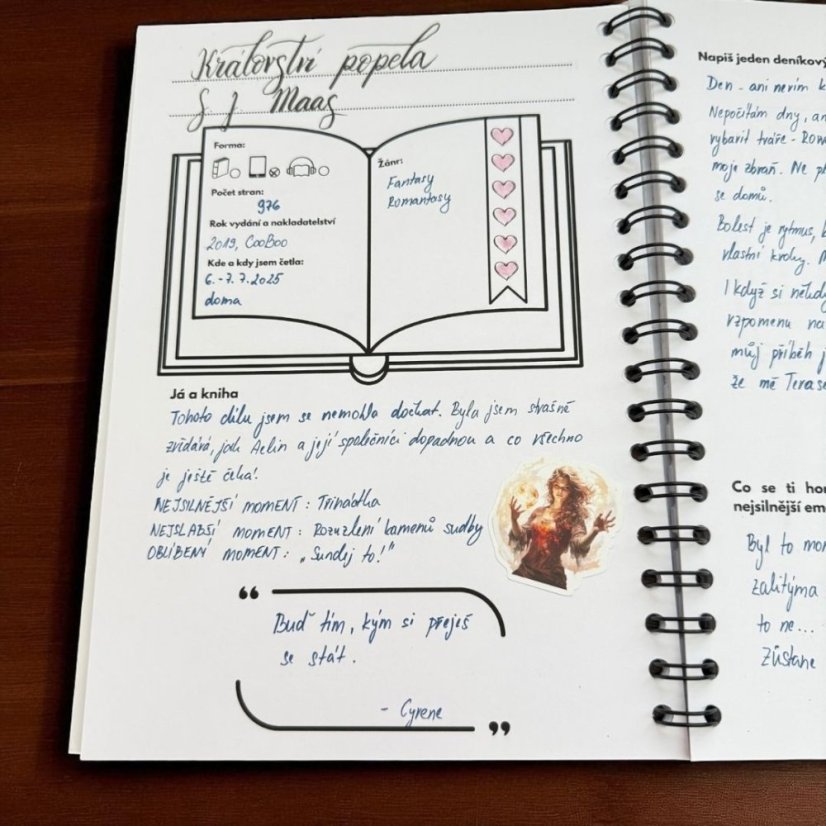 Království popela
S. J. Maas
Forma:
Počet stran:
976
Rok vydání a nakladatelství
2019, CooBoo
Kde a kdy jsem četla:
6. - 7. 7. 2025
doma
Žánr:
Fantasy
Romantasy
Já a kniha
Tohoto dílu jsem se nemohla dočkat. Byla jsem strašně
zvědavá, jak Aelin a její společníci dopadnou a co všechno
je ještě čeká.
NEJSILNĚJŠÍ MOMENT: Třináctka
NEJSLABŠÍ MOMENT: Rozuzlení kamenů sudby
OBLÍBENÝ MOMENT: „Sundej to!"
Buď tím, kým si přeješ
se stát.
- Cyrene
Napiš jeden deníkový
Den - ani nevím k
Nepočítám dny, an
vybavit tváře - Row
moje zbraň. Ne p
se domů.
Bolest je rytmus, k
vlastní kroky. M
I když si někdy
vzpomenu na
můj příběh j
že mě Teras
Co se ti ho
nejsilnější em
Byl to mo
zalitýma
to ne...
Zůstane